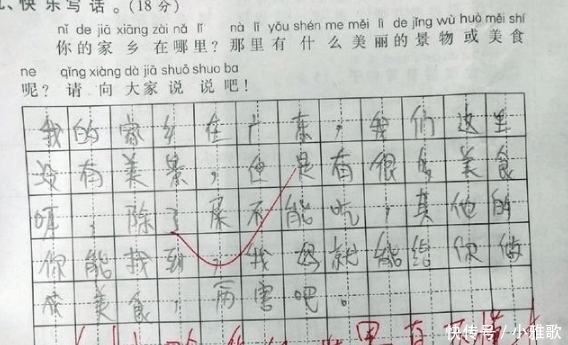 、快乐写话。(18分)
nǐ de jiā xiāng zài nǎ lǐ nà lǐ yǒu shén me měi lì de jǐng wù huò měi shí
你的家乡在哪里?那里有什么美丽的景物或美食
ne qǐng xiàng dà jiā shuō shuo ba
呢?请向大家说说吧!
我的家乡在广东,我们这里
没有美景,但是有很多美食
呢,除了屎不能吃,其他的
你能找到,我妈就能给你做
成美食,厉害吧。
快传号/小雅歌